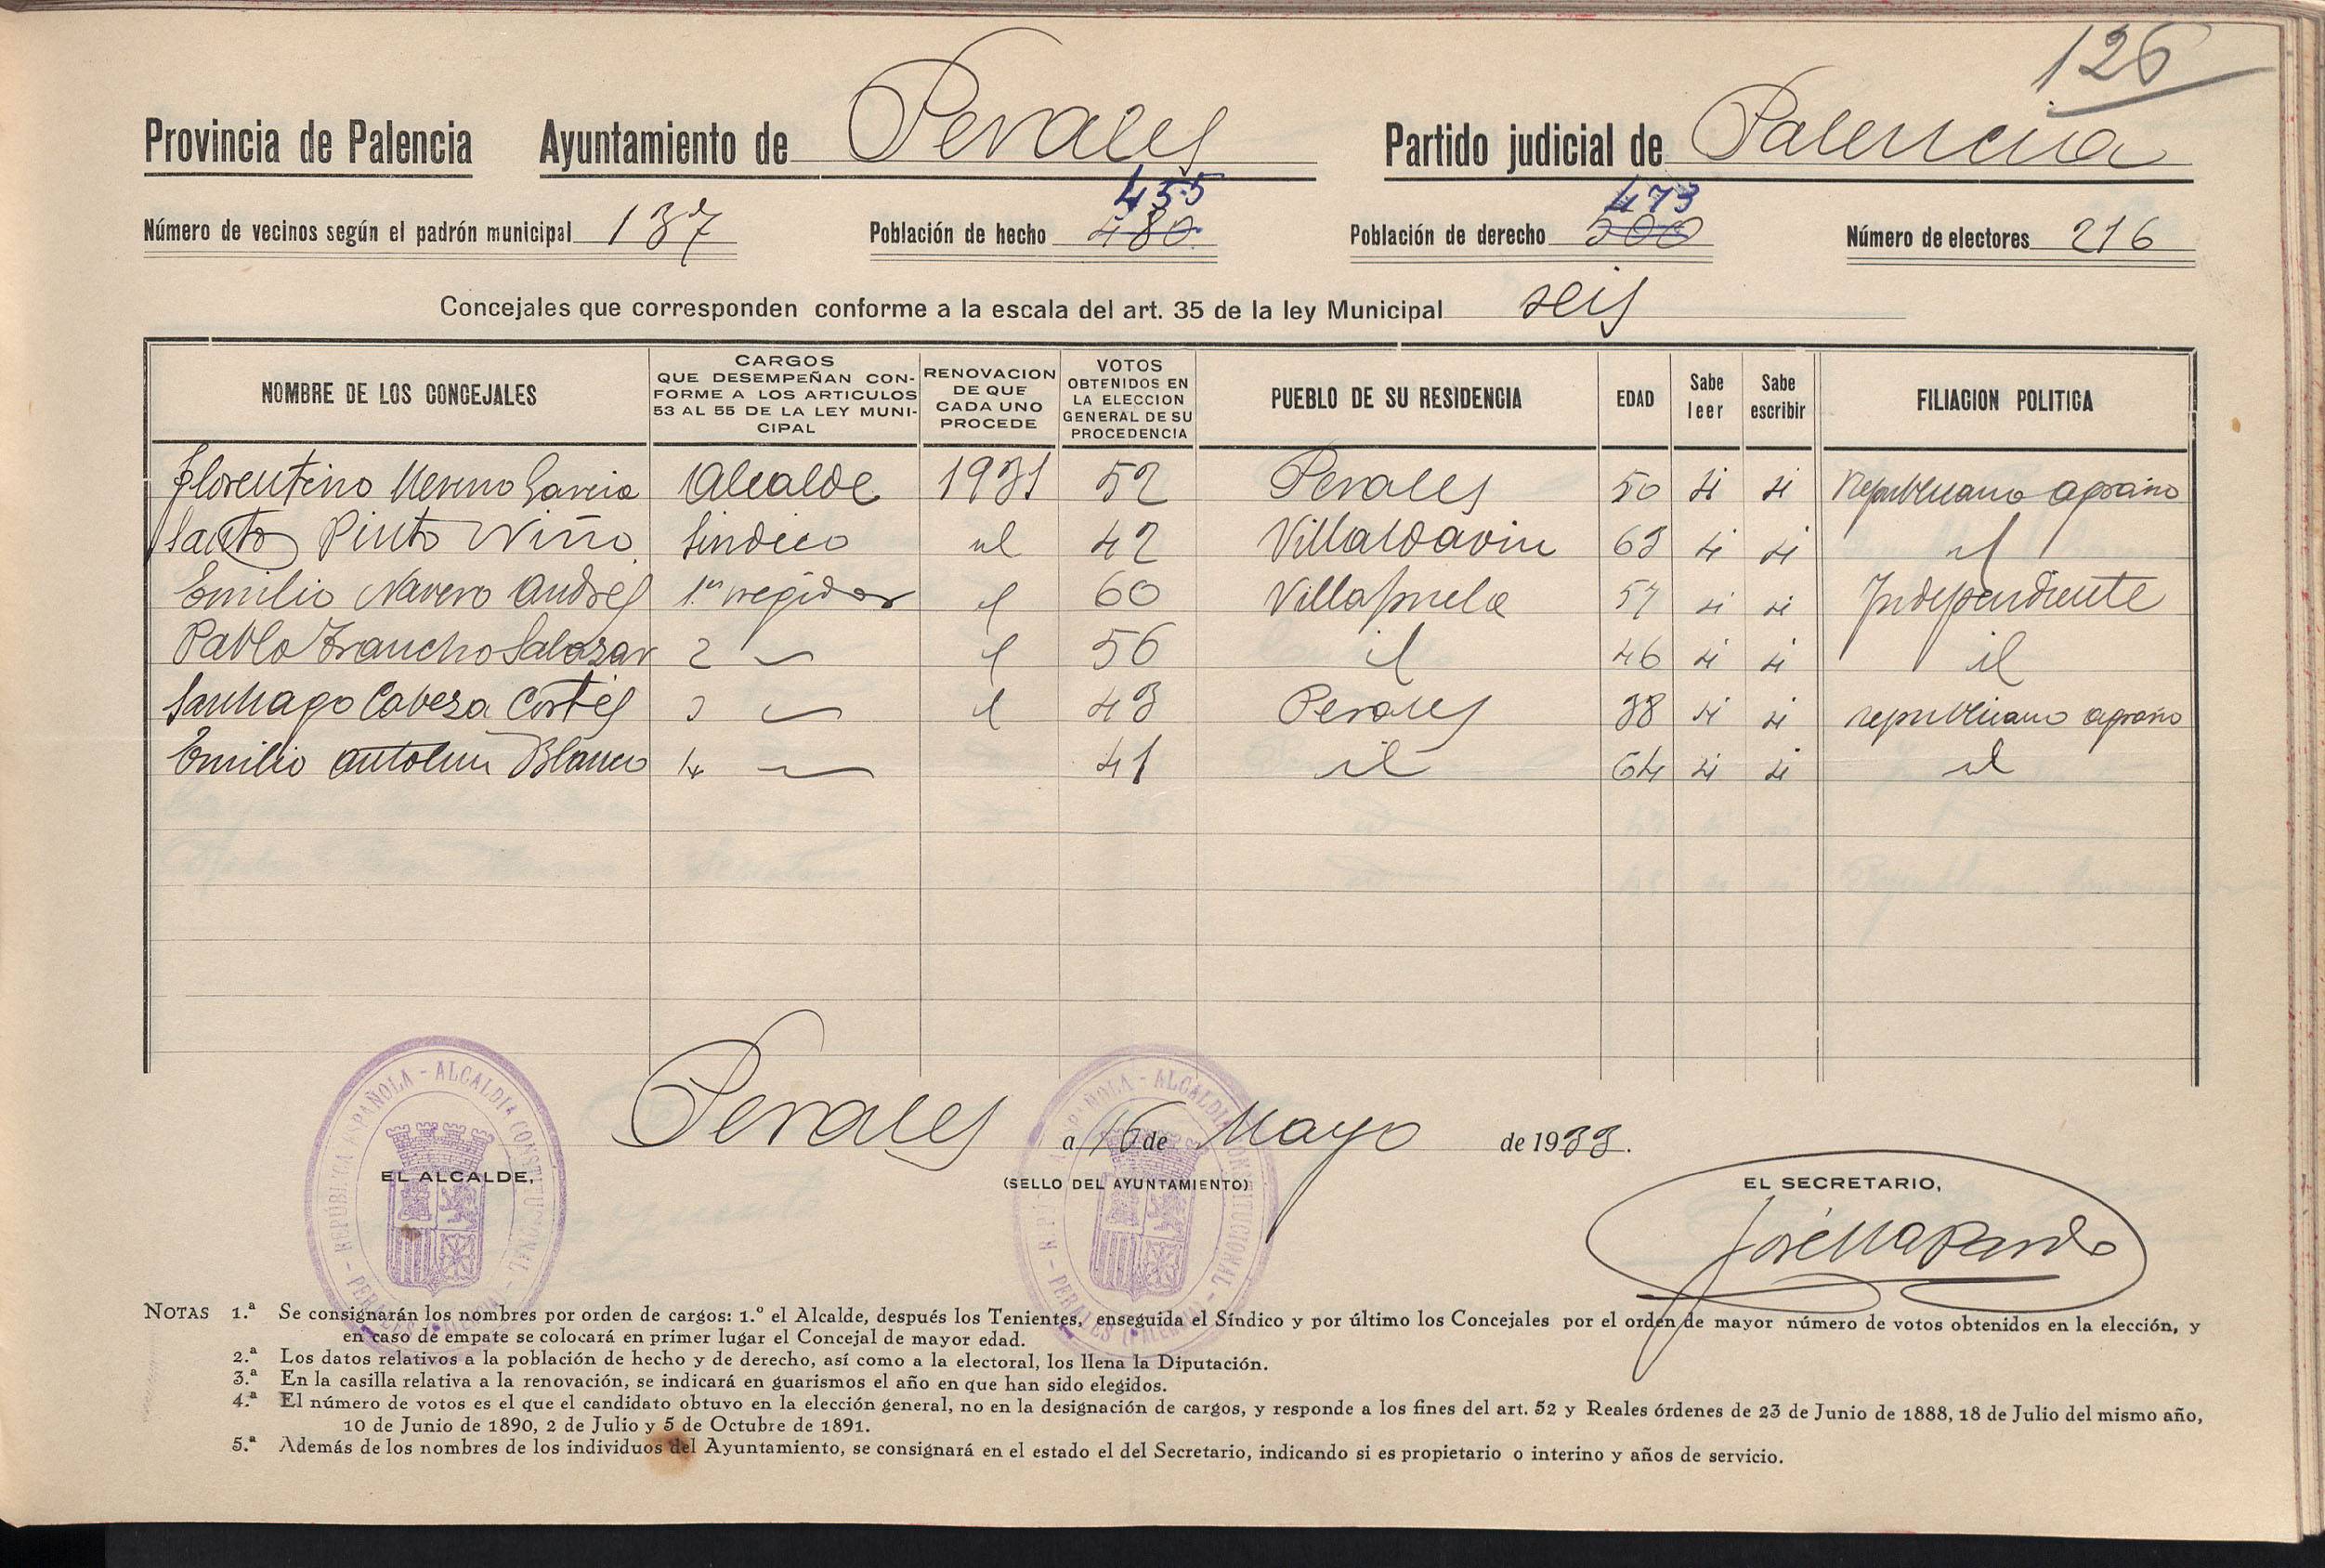 126
Provincia de Palencia Ayuntamiento de Perales Partido judicial de Palencia
455 473
Número de vecinos según el padrón municipal 137 Población de hecho 480 Población de derecho 500 Número de electores 216
Concejales que corresponden conforme a la escala del art. 35 de la ley Municipal seis
NOMBRE DE LOS CONCEJALES CARGOS QUE DESEMPEÑAN CONFORME A LOS ARTICULOS 53 AL 55 DE LA LEY MUNICIPAL RENOVACION DE QUE CADA UNO PROCEDE VOTOS OBTENIDOS EN LA ELECCION GENERAL DE SU PROCEDENCIA PUEBLO DE SU RESIDENCIA EDAD Sabe leer Sabe escribir FILIACION POLITICA
Florentino Mereno Garcia Alcalde 1931 52 Perales 50 si si Republicano agrario
Santos Pinto Niño Sindico id 42 Villaldavin 63 si si id
Emilio Navero Andres 1er regidor id 60 Villafruela 57 si si Independiente
Pablo Francho Salazar 2 id 56 id 46 si si id
Santiago Cabeza Cortés 3 id 43 Perales 38 si si republicano agrario
Emilio Antolin Blanco 4 41 id 64 si si id
Perales a 16 de Mayo de 1933.
EL ALCALDE, (SELLO DEL AYUNTAMIENTO) EL SECRETARIO,
REPÚBLICA ESPAÑOLA - ALCALDIA CONSTITUCIONAL - PERALES (PALENCIA)
REPÚBLICA ESPAÑOLA - ALCALDIA CONSTITUCIONAL - PERALES (PALENCIA)
José Mª Pardo
NOTAS 1.ª Se consignarán los nombres por orden de cargos: 1.º el Alcalde, después los Tenientes, enseguida el Síndico y por último los Concejales por el orden de mayor número de votos obtenidos en la elección, y
en caso de empate se colocará en primer lugar el Concejal de mayor edad.
2.ª Los datos relativos a la población de hecho y de derecho, así como a la electoral, los llena la Diputación.
3.ª En la casilla relativa a la renovación, se indicará en guarismos el año en que han sido elegidos.
4.ª El número de votos es el que el candidato obtuvo en la elección general, no en la designación de cargos, y responde a los fines del art. 52 y Reales órdenes de 23 de Junio de 1888, 18 de Julio del mismo año,
10 de Junio de 1890, 2 de Julio y 5 de Octubre de 1891.
5.ª Además de los nombres de los individuos del Ayuntamiento, se consignará en el estado el del Secretario, indicando si es propietario o interino y años de servicio.